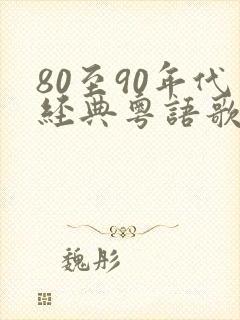 80至90年代
經典粵語歌
魏彤